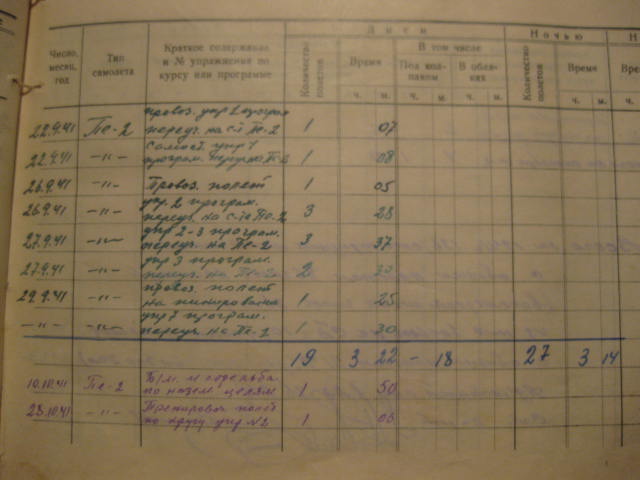 Д н е м
Н о ч ь ю
Число, месяц, год
Тип самолета
Краткое содержание и № упражнения по курсу или программе
Количество полетов
Время
В том числе
Под колпаком
В облаках
Количество полетов
Время
ч. м. ч. м. ч. м. ч. м.
провоз. упр 2 програм
22.9.41 Пе-2 переуч. на с-т Пе-2 1 07
Самост. упр 1
22.9.41 -"- програм. переуч на Пе-2 1 08
26.9.41 -"- Провоз. полет 1 05
упр. 2 програм.
26.9.41 -"- переуч. на с-т Пе-2 3 28
упр 2-3 програм.
27.9.41 -"- переуч. на Пе-2 3 37
упр 3 програм.
27.9.41 -"- переуч. на Пе-2 2 30
провоз. полет
29.9.41 -"- на пикирование 1 25
упр 7 програм.
-"- -"- переуч. на Пе-2 1 30
19 3 22 - 18 27 3 14
10.10.41 Пе-2 Б/м. и стрельба
по назем. целям 1 50
28.10.41 -"- Тренировоч. полет
по кругу упр №2 1 08